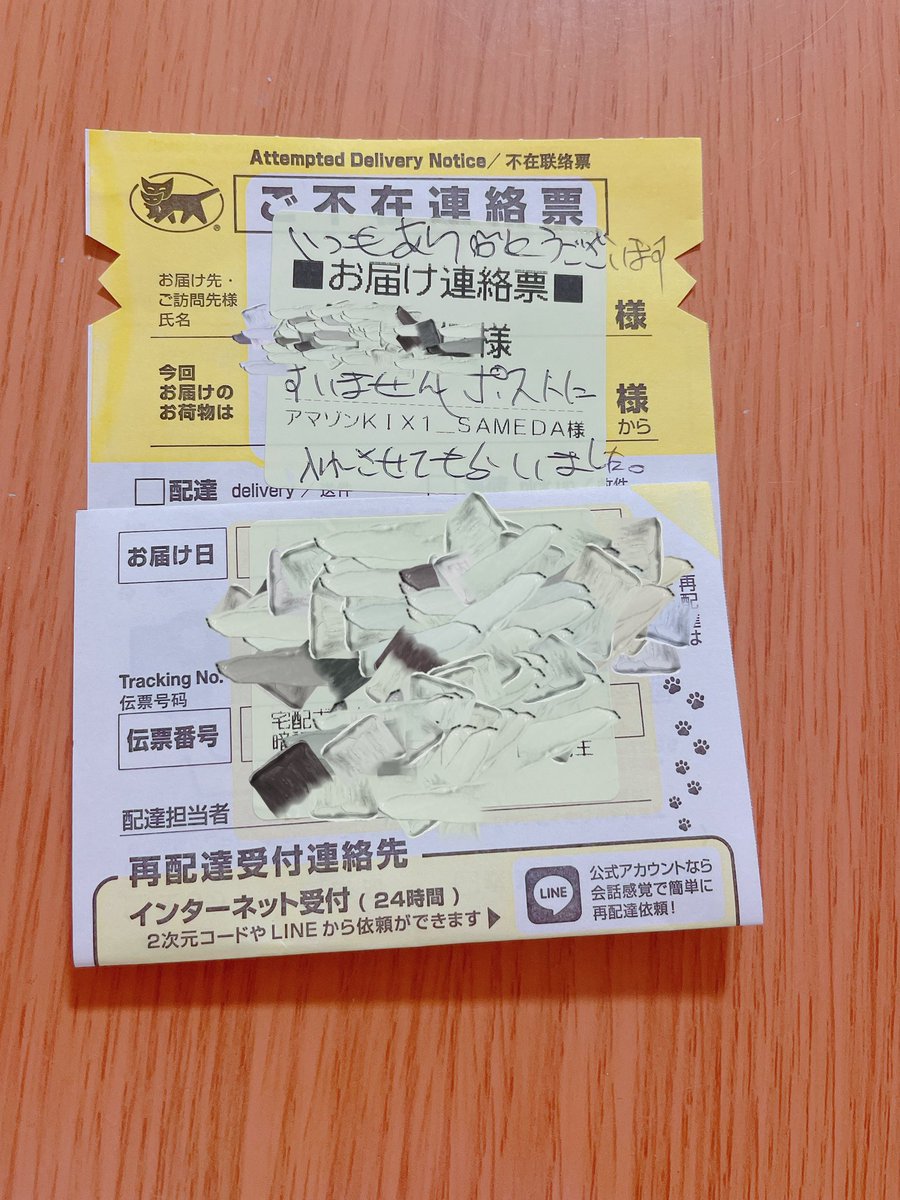 Attempted Delivery Notice／不在联络票
ご不在連絡票
いつもありがとうございます
■お届け連絡票■
お届け先・
ご訪問先様
氏名
様
様
今回
お届けの
お荷物は
すいませんポストに
様
から
アマゾンKIX1_SAMEDA様
入れさせてもらいました。
□配達 delivery／
お届け日
再
配
は
Tracking No.
伝票号码
伝票番号
宅配
配達担当者
再配達受付連絡先
インターネット受付（24時間）
2次元コードやLINEから依頼ができます▶
LINE
公式アカウントなら
会話感覚で簡単に
再配達依頼！